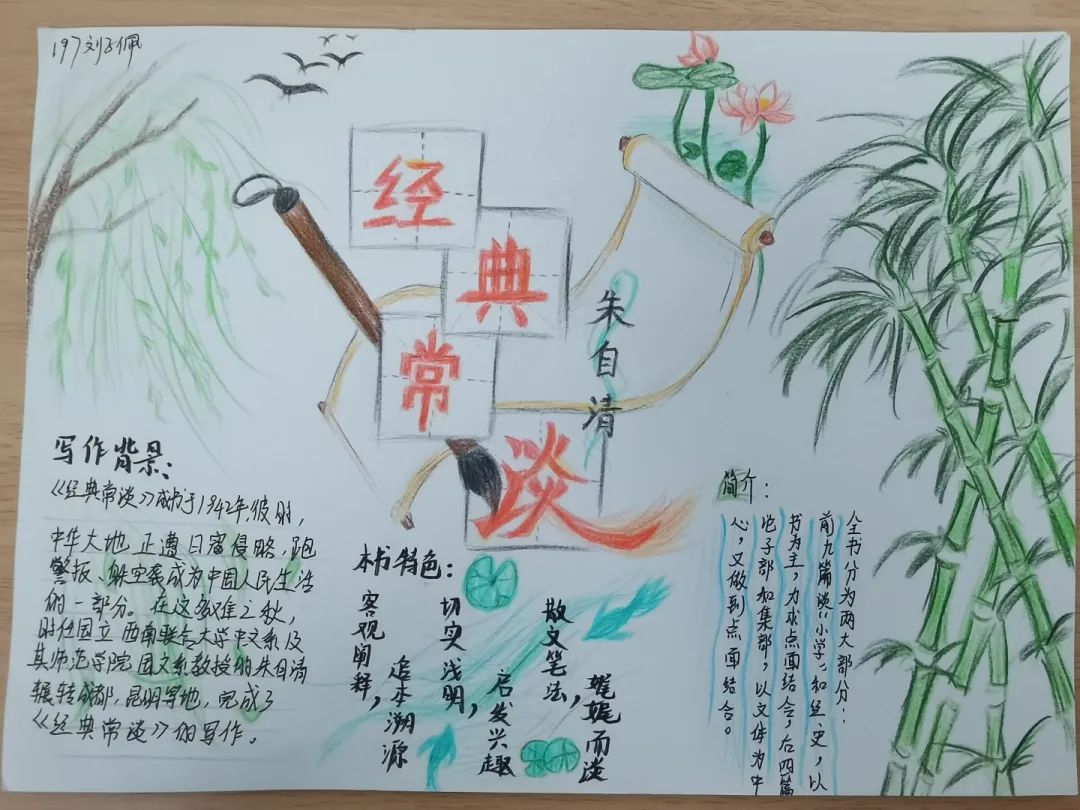 197刘子佩
经典常谈
朱自清
写作背景：
《经典常谈》成书于1942年，彼时，
中华大地正遭日寇侵略，跑
警报、躲空袭成为中国人民生活
的一部分。在这多难之秋，
时任国立西南联合大学中文系及
其师范学院国文系教授的朱自清
辗转成都，昆明等地，完成了
《经典常谈》的写作。
本书特色：
客观阐释，
追本溯源
切实浅明，
启发兴趣
散文笔法，
娓娓而谈
简介：
全书分为两大部分：
前九篇谈“小学”和经、史，以
书为主，力求点面结合；后四篇
论子部和集部，以文体为中
心，又做到点面结合。